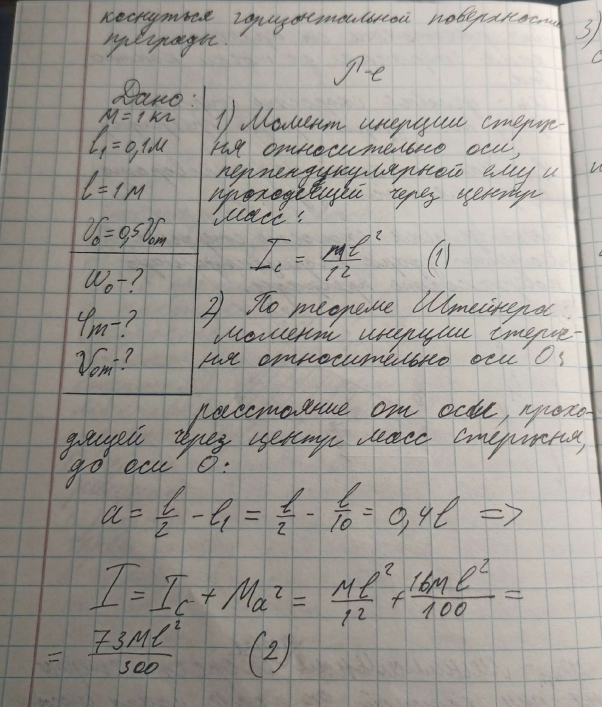 коснуться горизонтальной поверхностью
преграды.
Р-е
Дано:
M = 1 кг
l₁ = 0,1 м
l = 1 м
V₀ = 0,5 V₀m
ω₀ - ?
φm - ?
V₀m - ?
1) Момент инерции стерж-
ня относительно оси,
перпендукулярной ему и
проходящей через центр
масс:
I_c = ml²/12 (1)
2) По теореме Штейнера
момент инерции стерж-
ня относительно оси O:
расстояние от оси, прохо-
дящей через центр масс стержня,
до оси O:
a = l/2 - l₁ = l/2 - l/10 = 0,4l =>
I = I_c + Ma² = Ml²/12 + 16Ml²/100 =
= 73Ml²/300 (2)
3)